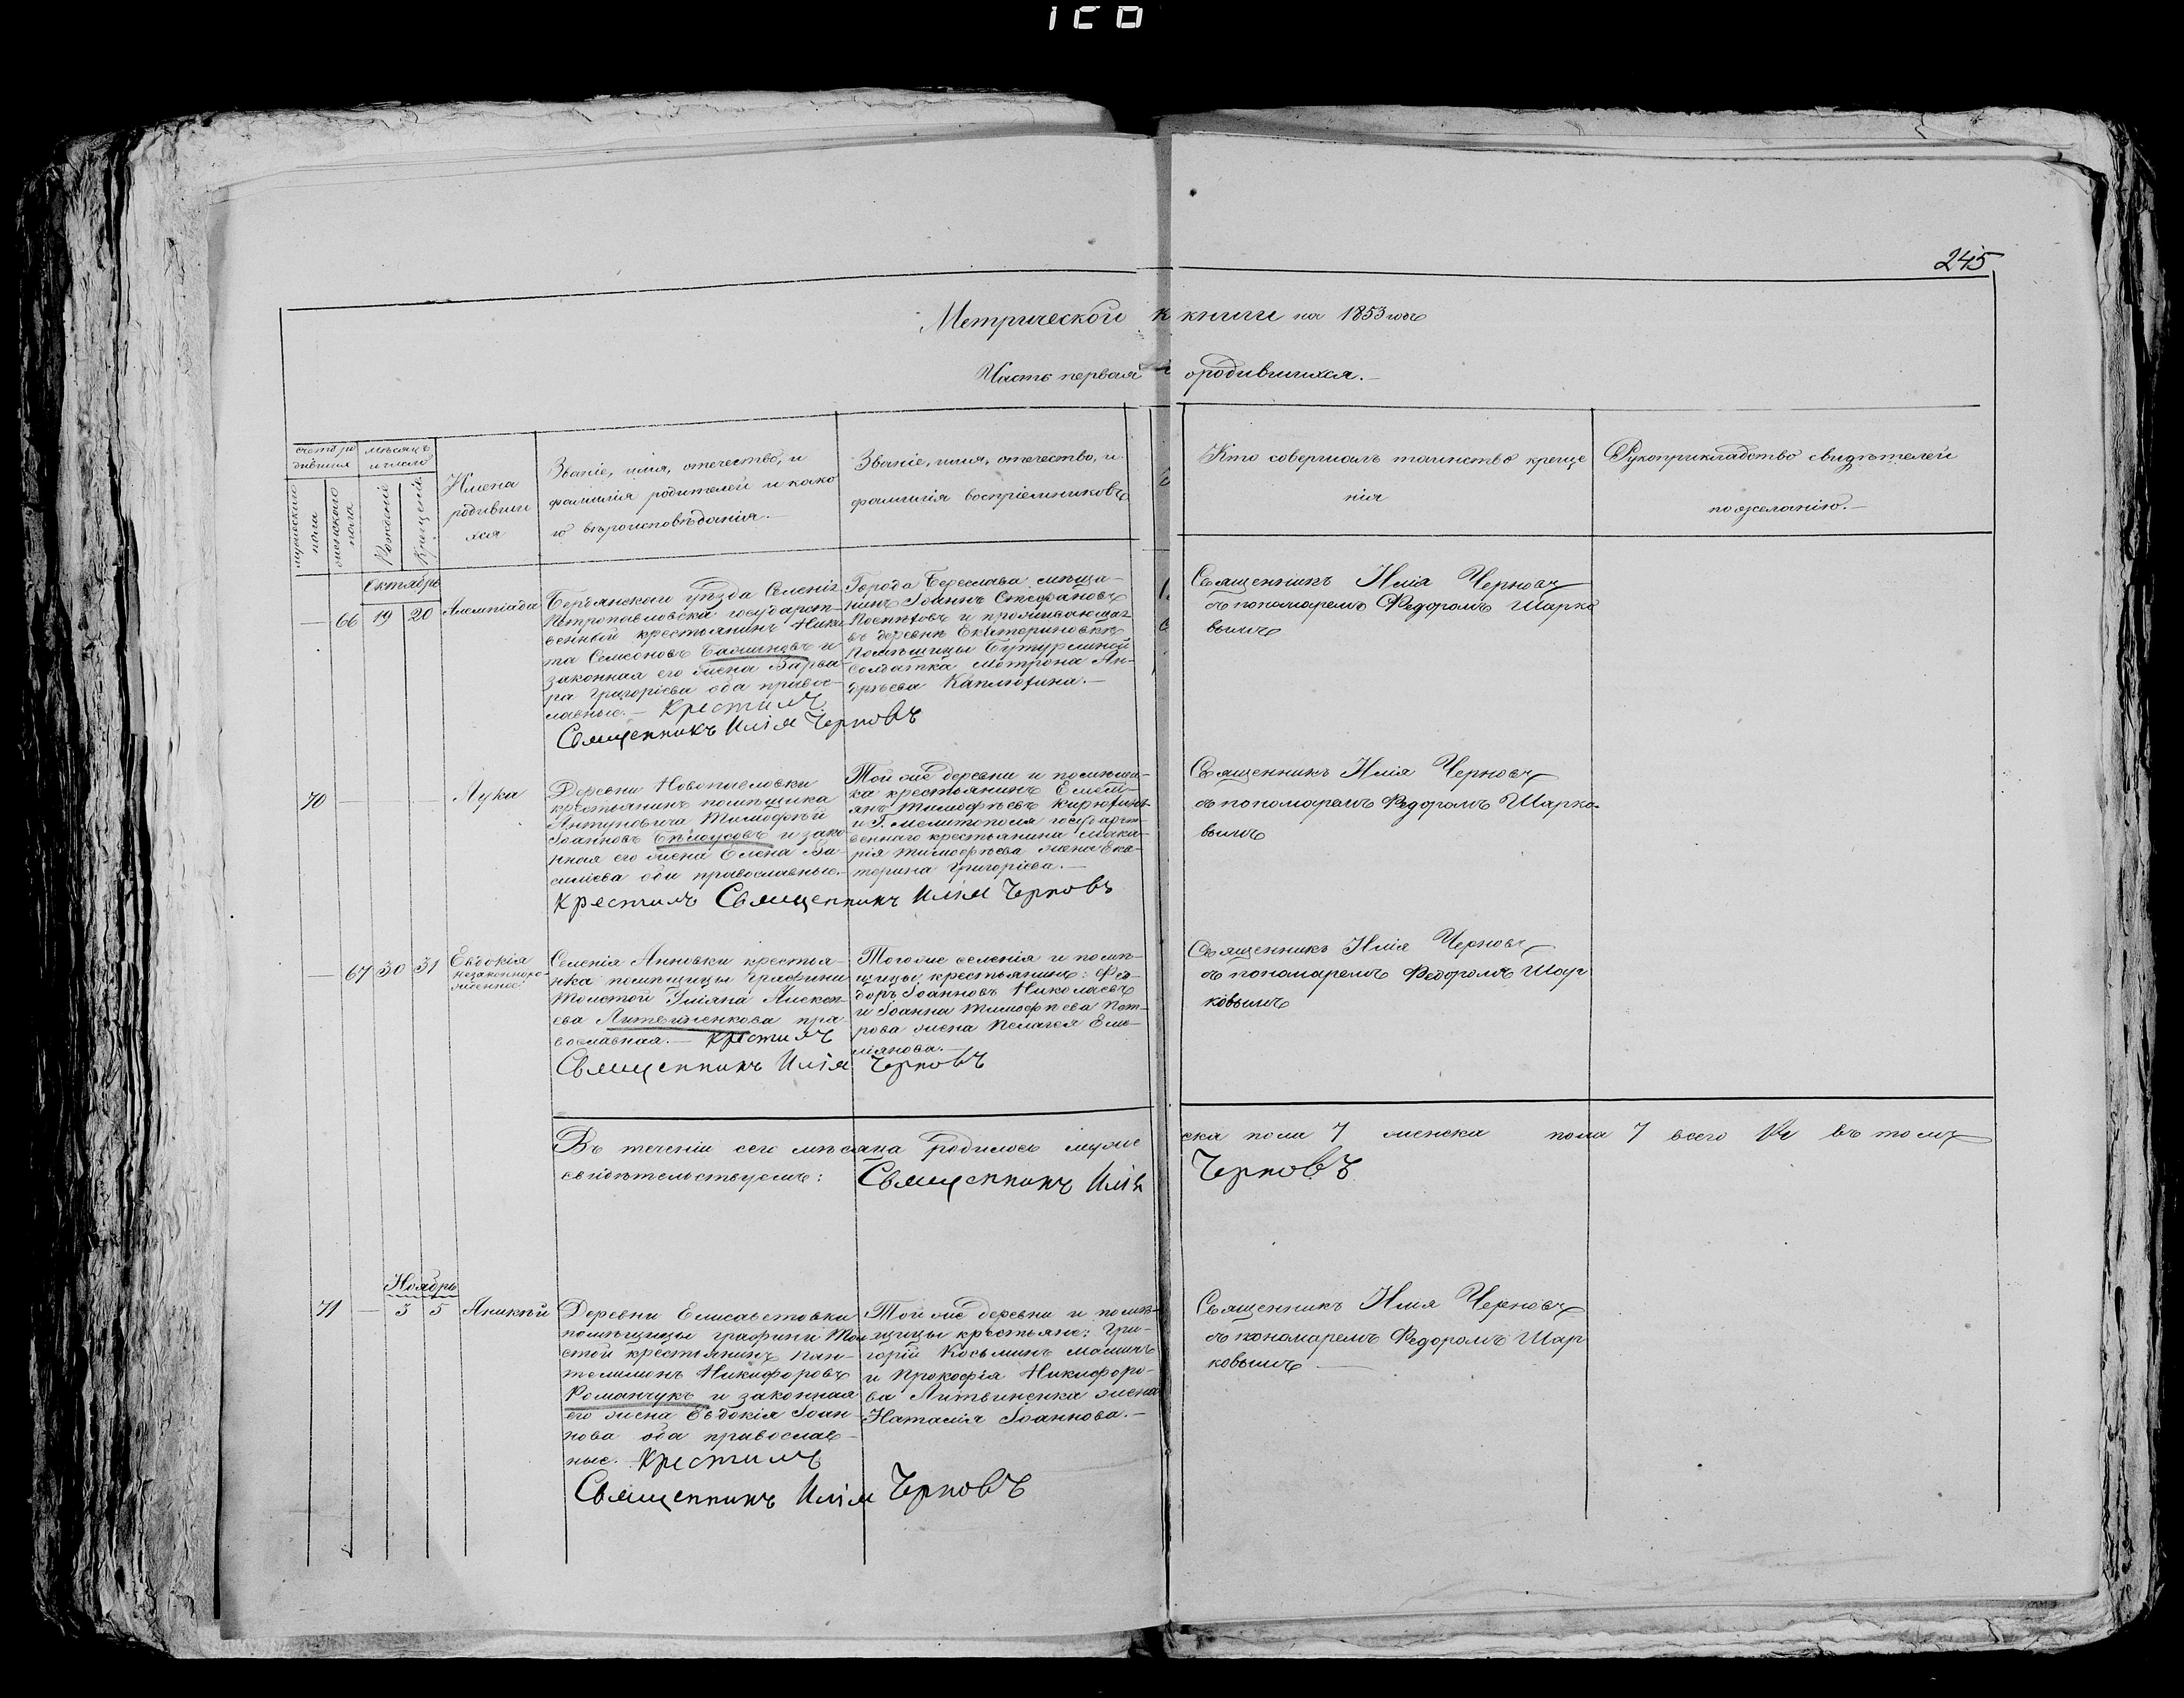 245
Метрической книги на 1853 годъ
Часть первая о родившихся.
счетъ ро
дившихся
мѣсяцъ
и число
мужескаго
пола
женскаго
пола
Рожденія
Крещенія
Имена
родивши
хся
Званіе, имя, отечество, и
фамилія родителей и како
го вѣроисповѣданія.
Званіе, имя, отечество, и
фамилія воспріемниковъ
Кто совершалъ таинство креще
нія
Рукоприкладство свидѣтелей
по желанію.
Октябрь
— 66 19 20
Алимпіада
Бердянскаго уѣзда Селенія
Петропавловска государст-
венный крестьянинъ Ники-
та Семеоновъ и
законная его жена Варва-
ра Григоріева оба правос-
лавные. — Крестилъ
Священникъ Илія Черновъ
Города Береслава мѣща-
нинъ Іоаннъ Стефановъ
и проживающая
въ деревнѣ Екатериновкѣ
помѣщицы Бутурлиной
солдатка Мотрона Ан-
дреева Каплюѳина. —
Священникъ Илія Черновъ
съ пономаремъ Федоромъ Шарко
вымъ
70 — — —
Лука
Деревни Новопавловки
крестьянинъ помѣщика
Антуновича Тимофѣй
Іоанновъ Бѣлоусовъ и зако-
нная его жена Елена Ва-
силіева оби православные. —
Крестилъ Священникъ Илія Черновъ
Той же деревни и помѣщи-
ка крестьянинъ Емелі-
янъ Тимофѣевъ Кирюѳинъ
и Г. Мелитополя государст-
веннаго крестьянина Мака-
рія Тимофѣева жена Ека-
терина Григоріева. —
Священникъ Илія Черновъ
съ пономаремъ Федоромъ Шарко-
вымъ
— 67 30 31
Евдокія
незаконноро-
жденное
Селенія Анновки крестья-
нка помѣщицы Графини
Толстой Іуліана Алексѣ-
ева Литвиненкова пра-
вославная. — Крестилъ
Священникъ Илія Черновъ
Тогоже селенія и помѣ-
щицы крестьянинъ: Фео-
доръ Іоанновъ Николаевъ
и Іоанна Тимофѣева Пет-
рова жена Пелагея Еме-
ліянова. —
Священникъ Илія Черновъ
съ пономаремъ Федоромъ Шар
ковымъ
Въ теченіи сего мѣсяца родилось муже ска пола 7 женска пола 7 всего 14 въ томъ
свидѣтельствуемъ: Священникъ Илія Черновъ
Ноябрь
71 — 3 5
Аникѣй
Деревни Елисаветовки
помѣщицы графини Тол
стой крестьянинъ Пан-
телимонъ Никифоровъ
Романчукъ и законная
его жена Евдокія Іоан-
нова оба православ-
ные. Крестилъ
Священникъ Илія Черновъ
Той же деревни и помѣ-
щицы крестьяне: Гри-
горій Косьминъ
и Прокофія Никифоро-
ва Литвиненка жена
Наталія Іоаннова. —
Священникъ Илія Черновъ
съ пономаремъ Федоромъ Шар
ковымъ —